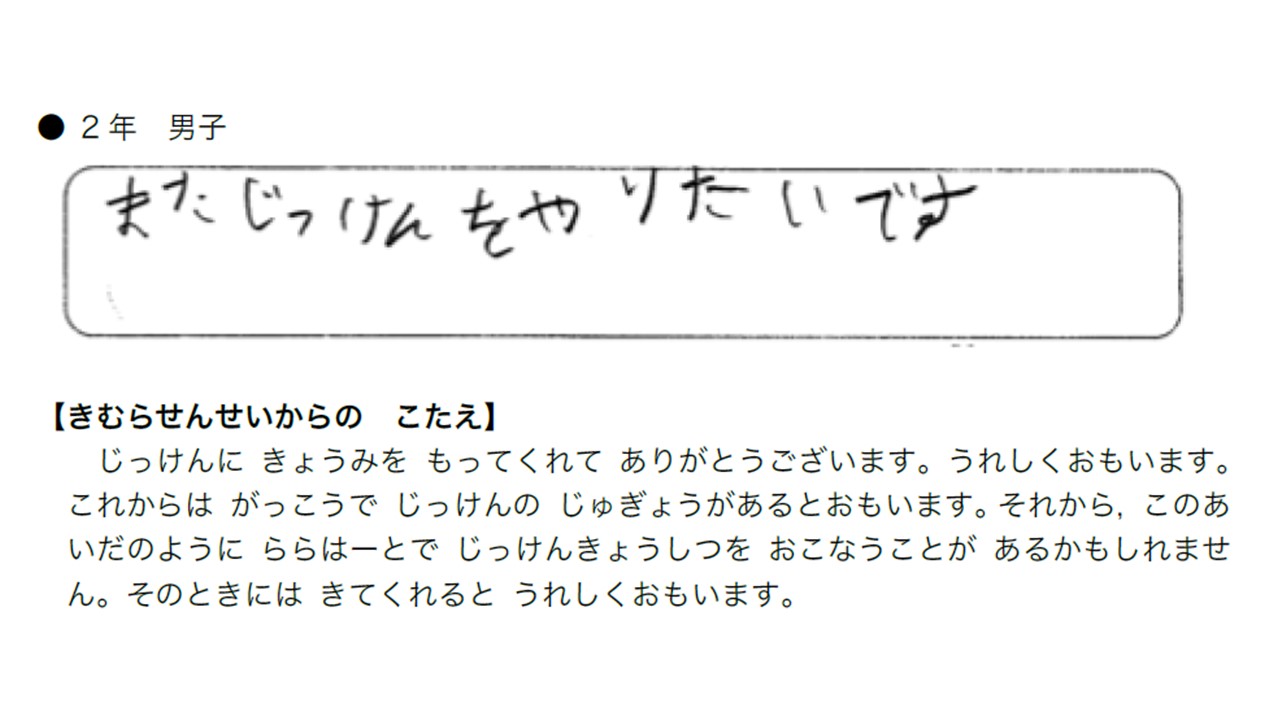 ● 2年　男子
またじっけんをやりたいです
【きむらせんせいからの　こたえ】
じっけんに きょうみを もってくれて ありがとうございます。うれしくおもいます。
これからは がっこうで じっけんの じゅぎょうがあるとおもいます。それから，このあ
いだのように ららはーとで じっけんきょうしつを おこなうことが あるかもしれませ
ん。そのときには きてくれると うれしくおもいます。